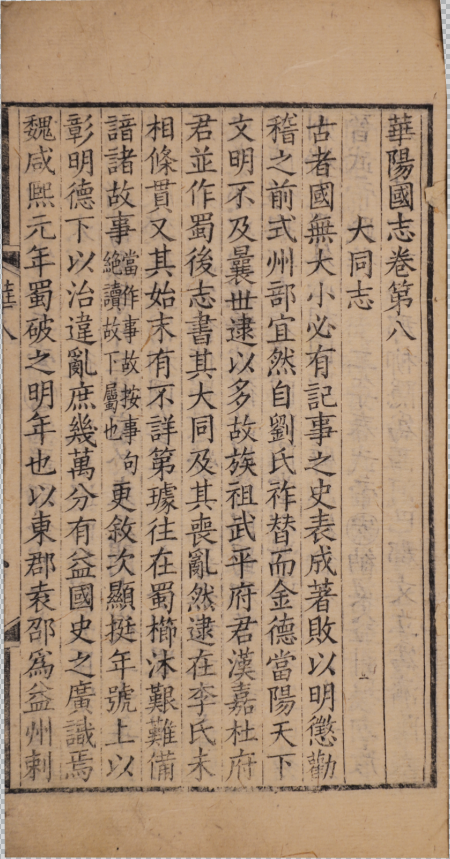 華陽國志卷第八
大同志
古者國無大小必有記事之史表成著敗以明懲勸
稽之前式州部宜然自劉氏祚替而金德當陽天下
文明不及曩世逮以多故族祖武平府君漢嘉杜府
君並作蜀後志書其大同及其喪亂然逮在李氏未
相條貫又其始末有不詳第璩往在蜀櫛沐艱難備
諳諸故事當作事故按事句絕讀故下屬也更敘次顯挺年號上以
彰明德下以治違亂庶幾萬分有益國史之廣識焉
魏咸熙元年蜀破之明年也以東郡袁邵爲益州刺